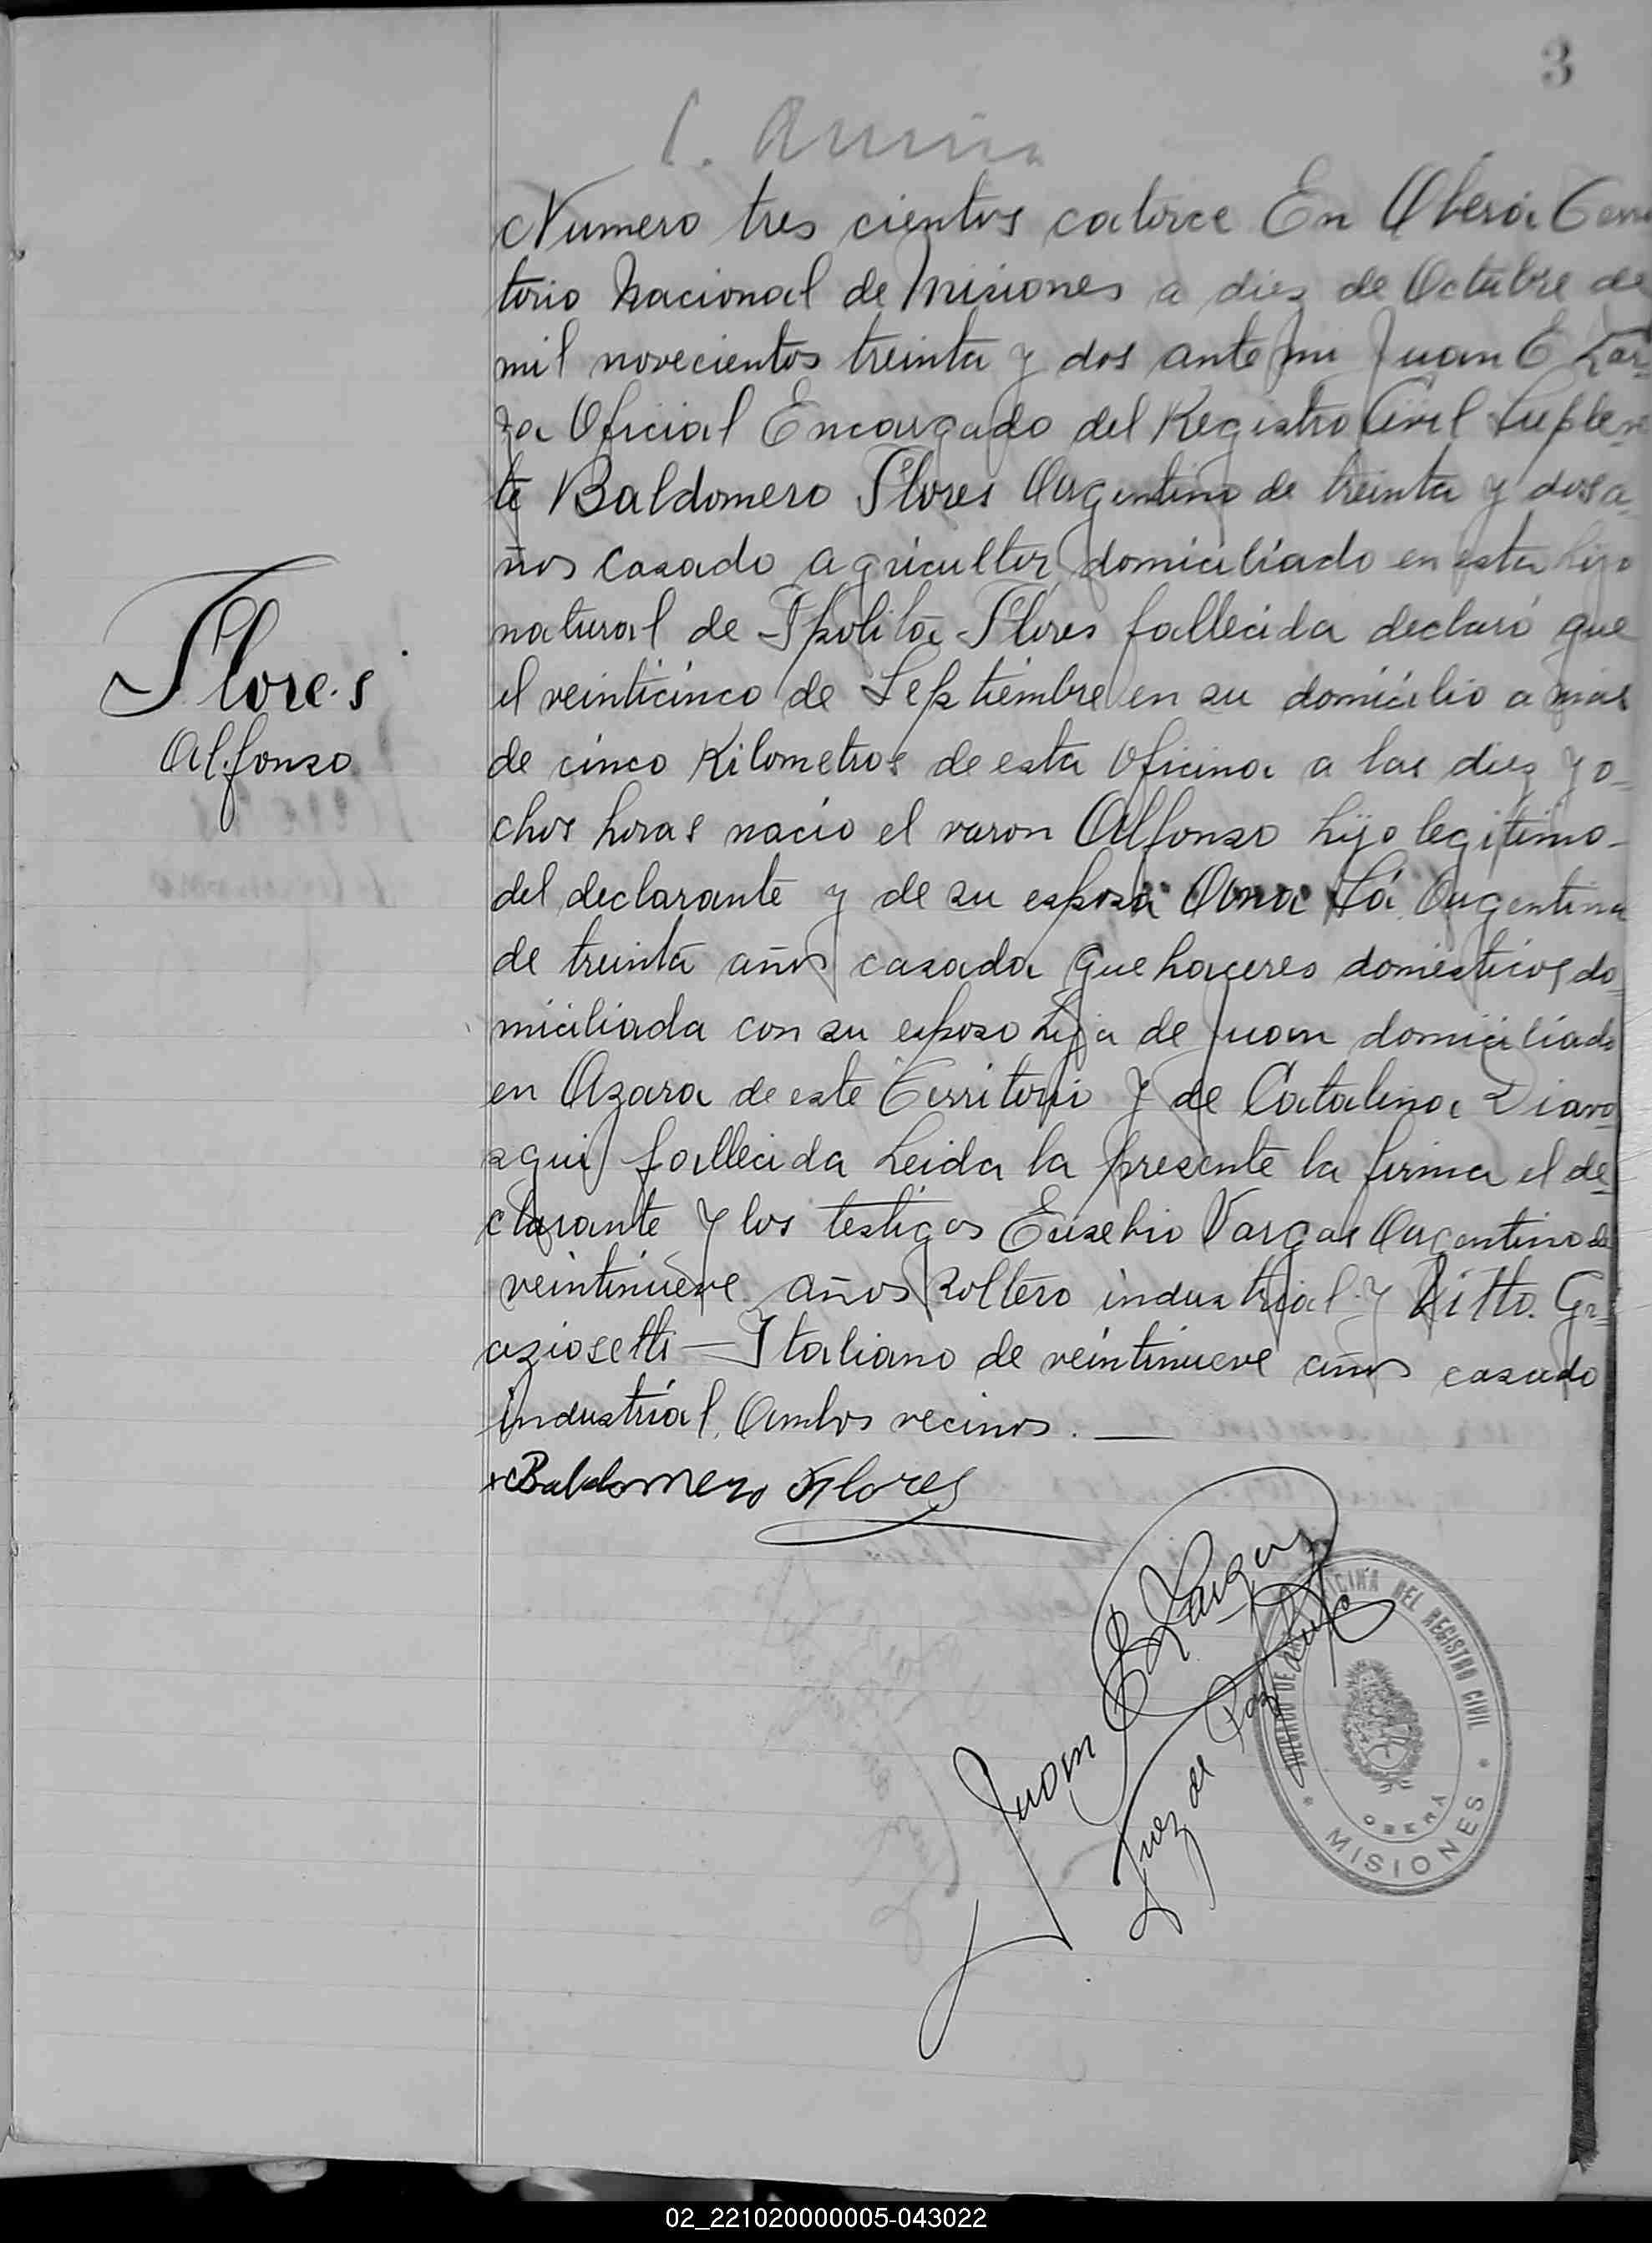 3
Numero tres cientos catorce En Oberá Terri
torio Nacional de Misiones a diez de Octubre de
mil novecientos treinta y dos ante mi Juan E Zar=
za Oficial Encargado del Registro Civil Suplen=
te Baldomero Flores Argentino de treinta y dos a=
ños casado agricultor domiciliado en esta hijo
natural de Ipolita Flores fallecida declaró que
el veinticinco de Septiembre en su domicilio a mas
de cinco Kilometros de esta Oficina a las diez y o=
chos horas nacio el varon Alfonso hijo legitimo
Flores
Alfonso
del declarante y de su esposa Ana Argentina
de treinta años casada Que haceres domesticos do=
miciliada con su esposo hija de Juan domiciliado
en Azara de este Territorio y de Catalina
fallecida Leida la presente la firma el de=
clarante y los testigos Eusebio Vargas Argentino de
veintinueve años soltero industrial y Gr=
aziosetti — Italiano de veintinueve años casado
industrial. Ambos vecinos. —
Baldomero Flores
Juan E Zarza
Juez de Paz
OFICINA DEL REGISTRO CIVIL
JUZGADO DE PAZ
OBERÁ
* MISIONES *
02_221020000005-043022